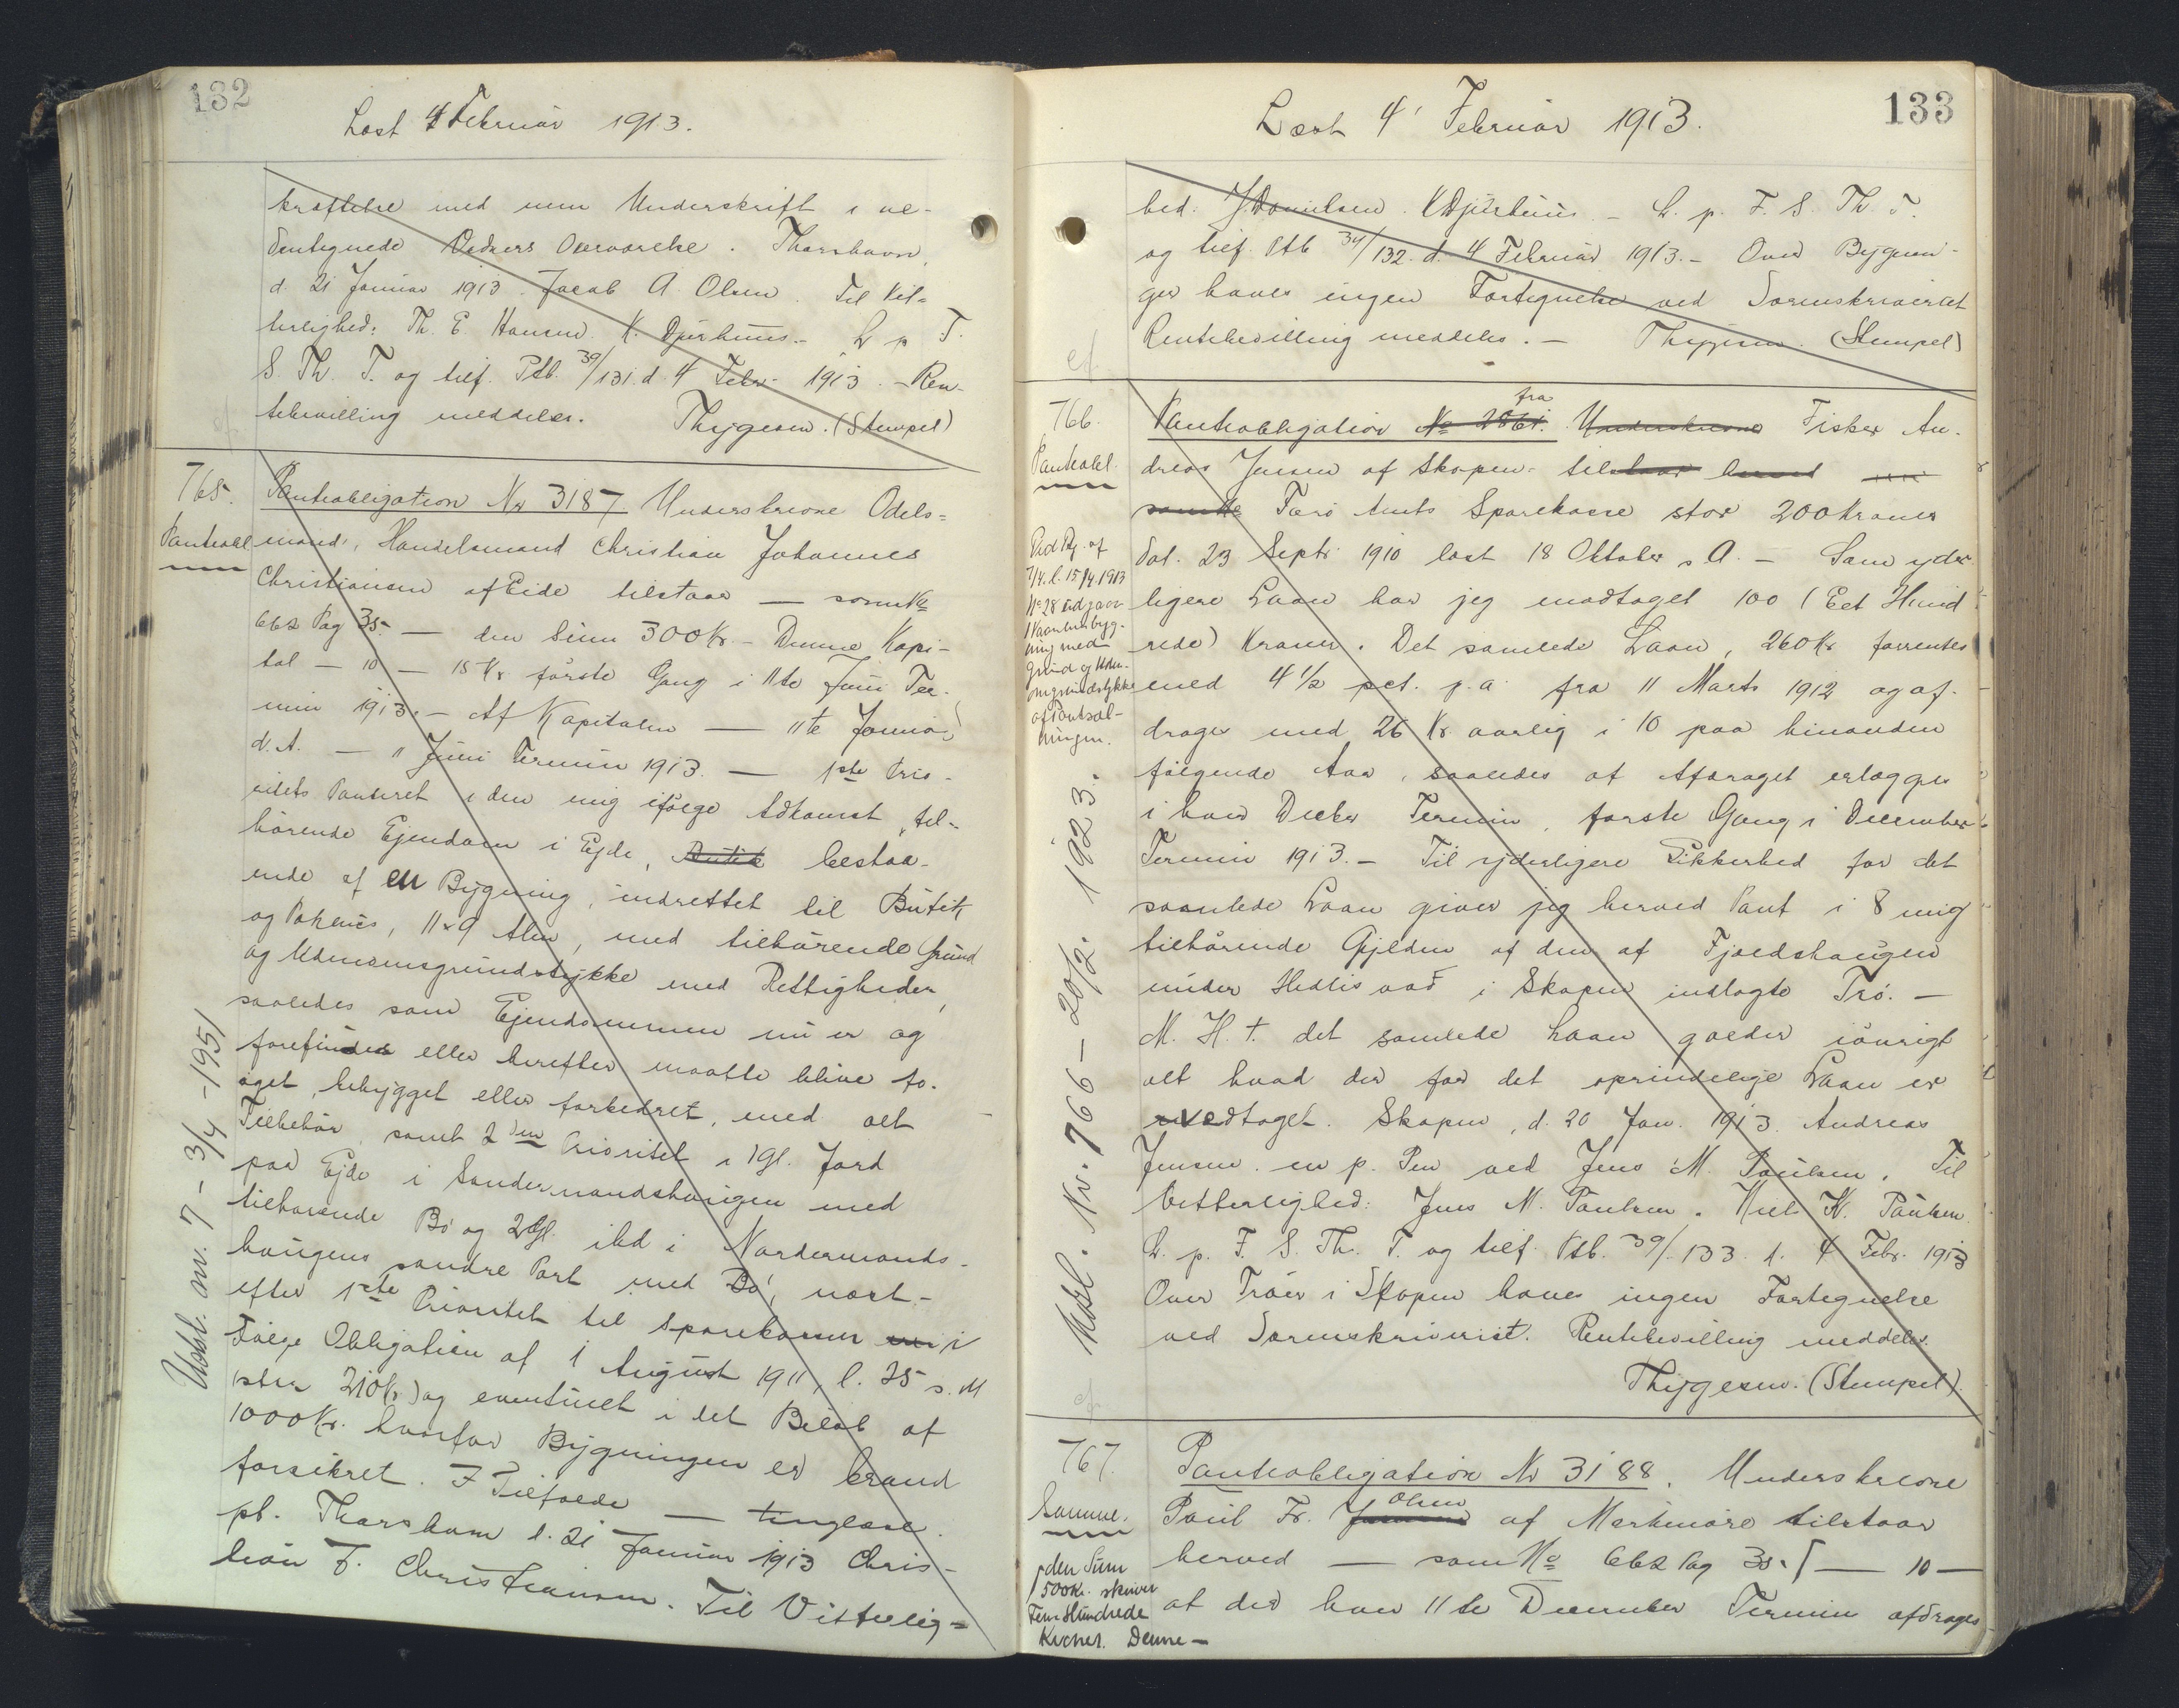 132
Læst 4 Februar 1913.
kræftelse med min Underskrift i ne-
dentegnede Vidners Overværelse. Thorshavn,
d. 21 Januar 1913. Jacob A. Olsen. Til Vit-
terlighed: Th. E. Hansen. K. Djurhuus. - L p F.
S. Th. T. og tilf. Ptb. 39/131. d. 4 Febr. 1913. - Ren-
tebevilling meddeles. Thygesen. (Stempel)
765.
Panteobl
Panteobligation Nr 3187 Underskrevne Odels-
mand, Handelsmand Christian Johannes
Christiansen af Eide tilstaar — som No
662 Pag 35. — den Sum 300 Kr. - Denne Kapi-
tal — 10 — 15 Kr første Gang i 11te Juni Ter-
min 1913. - Af Kapitalen — 11te Januar
d. A. — 11 Juni Termin 1913. — 1ste Prio-
ritets Panteret i den mig ifølge Adkomst til-
hørende Ejendom i Ejde, Butik bestaa-
ende af en Bygning, indrettet til Butik
og Pakhus, 11 x 9 Alen, med tilhørende Grund
og Udenomsgrundstykke med Rettigheder,
saaledes som Ejendommen nu er og
forefindes eller herefter maatte blive for-
øget, bebygget eller forbedret, med alt
Tilbehør, samt 2den Prioritet i 1 Gl. Jord
paa Ejde i Søndermandshaugen med
tilhørende Bø og 2 Gl. ibd i Nordermands-
haugens søndre Part med Bø, næst-
efter 1ste Prioritet til Sparekassen i
Følge Obligation af 1 August 1911, l. 25 s. M
(stor 210 Kr) og eventuelt i det Beløb af
1000 Kr. hvorfor Bygningen er brand
forsikret. I Tilfælde — tinglæse.
pt. Thorshavn d. 21 Januar 1913 Chris-
tian J. Christiansen. Til Vitterlig-
Udsl. an. 7 - 3/4 - 1951
133
Læst 4' Februar 1913.
hed: J. Danielsen. K Djurhuus. - L. p. F. S. Th. T.
og tilf. Ptb 39/132. d. 4 Februar 1913. - Over Bygnin-
ger haves ingen Fortegnelse ved Sorenskriveriet
Rentebevilling meddeles. - Thygesen. (Stempel)
766.
Panteobl.
Panteobligation No 2861. fra Underskrevne Fisker An-
dreas Jensen af Skopen tilstaar herved
som No Færø Amts Sparekasse stor 200 Kroner
dat. 23 Septr 1910 læst 18 Oktober s. A. - Som yder-
ligere Laan har jeg modtaget 100 (Eet Hund
rede) Kroner. Det samlede Laan, 260 Kr forrentes
med 4 1/2 pct. p. a. fra 11 Marts 1912 og af-
drages med 26 Kr aarlig i 10 paa hinanden
følgende Aar, saaledes at Afdraget erlægges
i hver Decbr Termin, første Gang i December
Termin 1913. - Til yderligere Sikkerhed for det
samlede Laan giver jeg herved Pant i 8 mig
tilhørende Gylden af den af Fjordshaugen
under Hedlisvad i Skopen indlagte Trø. -
M. H. t. det samlede Laan gælder iøvrigt
alt hvad der for det oprindelige Laan er
vedtaget. Skopen, d. 20 Jan. 1913. Andreas
Jensen. m p. Pen ved Jens M. Poulsen. Til
Vitterlighed: Jens M. Poulsen. Niels K. Poulsen
L. p. F. S. Th. T. og tilf. Ptb. 39/133. d. 4 Febr. 1913
Over Trøer i Skopen haves ingen Fortegnelse
ved Sorenskriveriet. Rentebevilling meddeles.
Thygesen. (Stempel).
Ved Pg. af
7/4. l. 15/4.1913
No 28 udgaar
Vaaningsbyg-
ning med
Grund og Uden-
omsgrundstykke
af Pantsæt-
ningen.
Udsl. Nr. 766 - 20/2. 1923.
767.
Samme.
Panteobligation Nr 3188. Underskrevne
Poul Fr. Olsen af Mørkmøre tilstaar
herved — som No 662 Pag 35. ⌈ — 10 —
at der hver 11te December Termin afdrages
⌈ den Sum
500 Kr. skriver
Fem Hundrede
Kroner. Denne -